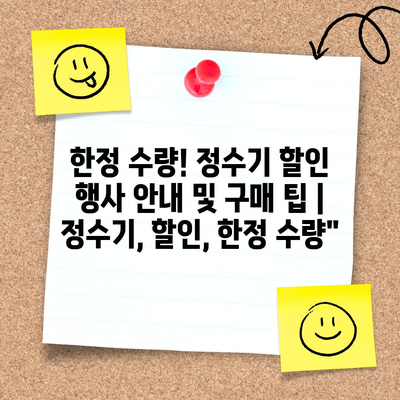 한정 수량! 정수기 할인
행사 안내 및 구매 팁 |
정수기, 할인, 한정 수량"